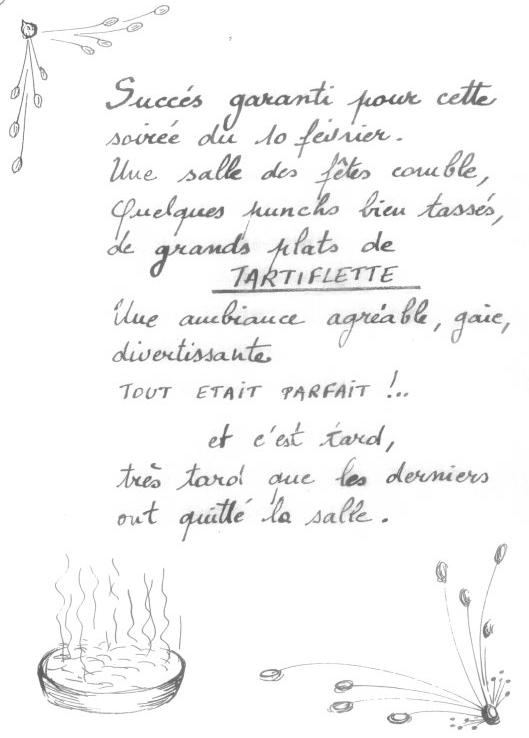 Succés garanti pour cette
soirée du 10 février.
Une salle des fêtes comble,
Quelques punchs bien tassés,
de grands plats de
TARTIFLETTE
Une ambiance agréable, gaie,
divertissante
TOUT ETAIT PARFAIT !..
et c'est tard,
très tard que les derniers
ont quitté la salle.